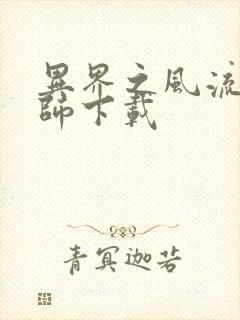 異界之風流
師下載
青冥迦若